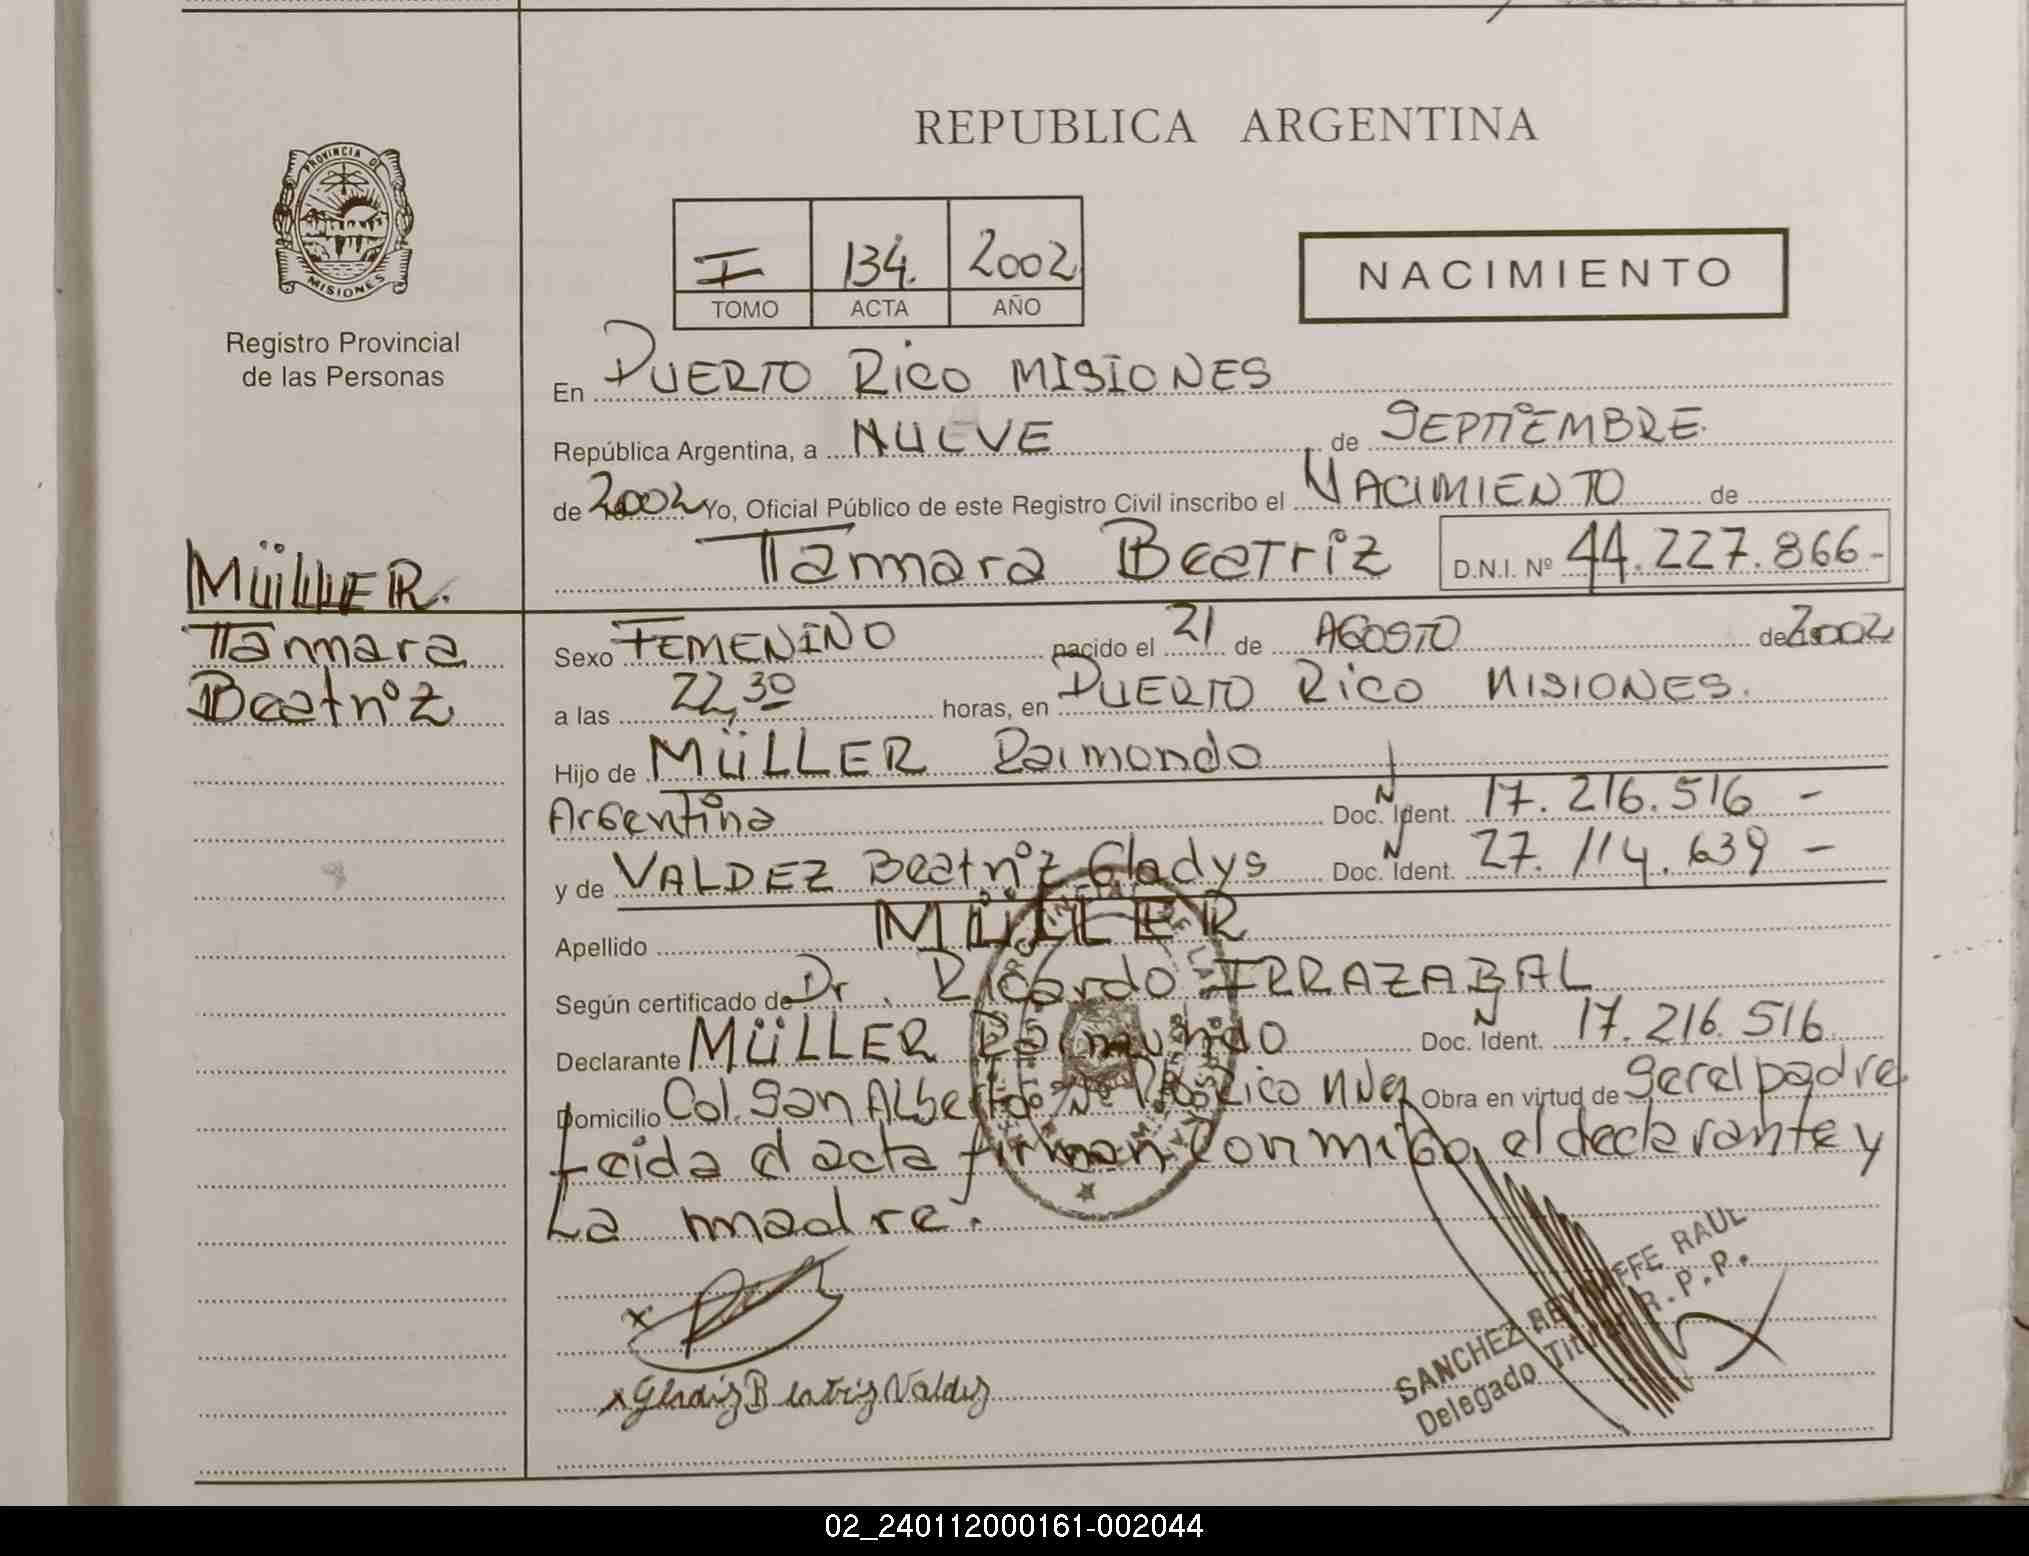 REPUBLICA ARGENTINA
PROVINCIA DE
MISIONES
Registro Provincial
de las Personas
I 134. 2002
TOMO ACTA AÑO
NACIMIENTO
En PUERTO RICO MISIONES
República Argentina, a NUEVE de SEPTIEMBRE
de 2002 Yo, Oficial Público de este Registro Civil inscribo el NACIMIENTO de
Tamara Beatriz D.N.I. Nº 44.227.866-
MÜLLER.
Tamara
Beatriz
Sexo FEMENINO nacido el 21 de AGOSTO de 2002
a las 22,30 horas, en PUERTO RICO MISIONES.
Hijo de MÜLLER Raimundo
Argentina Doc. Ident. 17.216.516 -
y de VALDEZ Beatriz Gladys Doc. Ident. 27.114.639 -
Apellido MÜLLER
Según certificado de Dr. Ricardo IRRAZABAL
Declarante MÜLLER Raimundo Doc. Ident. 17.216.516.
Domicilio Col. San Alberto Rico Obra en virtud de ser el padre
Leida el acta firman Conmigo, el declarante y
La madre.
x
x Gladiz Beatriz Valdez
SANCHEZ RAUL
Delegado Titular R.P.P.
02_240112000161-002044